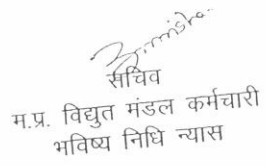 सचिव
म.प्र. विद्युत मंडल कर्मचारी
भविष्य निधि न्यास